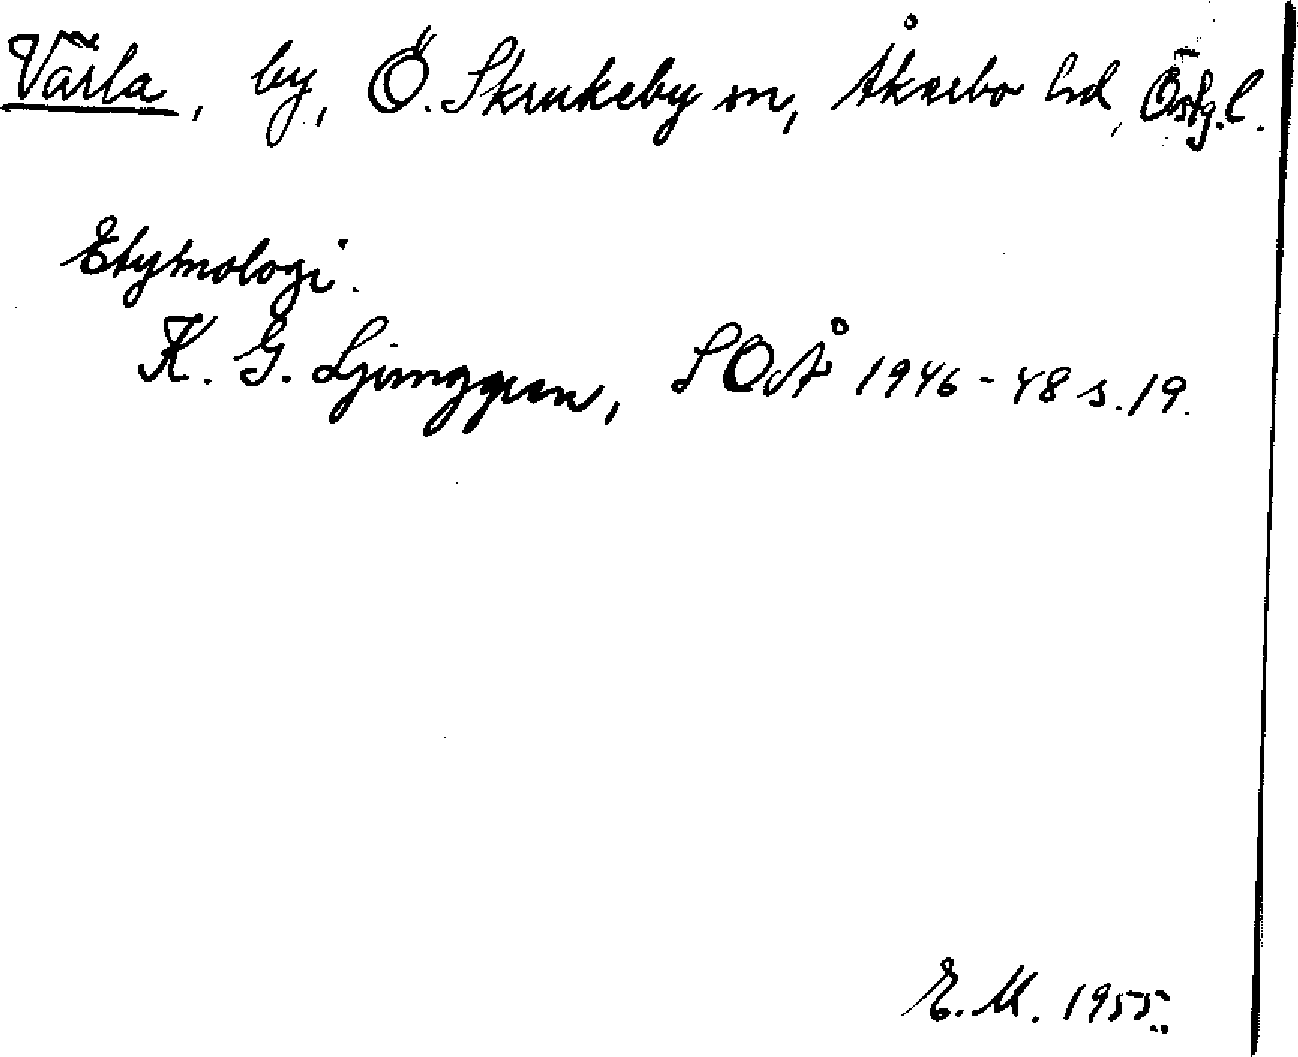 Värla, by, Ö. Skrukeby sn, Åkerbo hd, Östg. l.
Etymologi.
K. G. Ljunggren, SOÅ 1946-48 s. 19.
E. M. 1955.